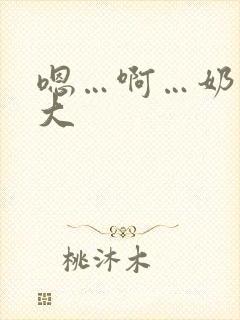 嗯…啊…奶
大
桃沐木